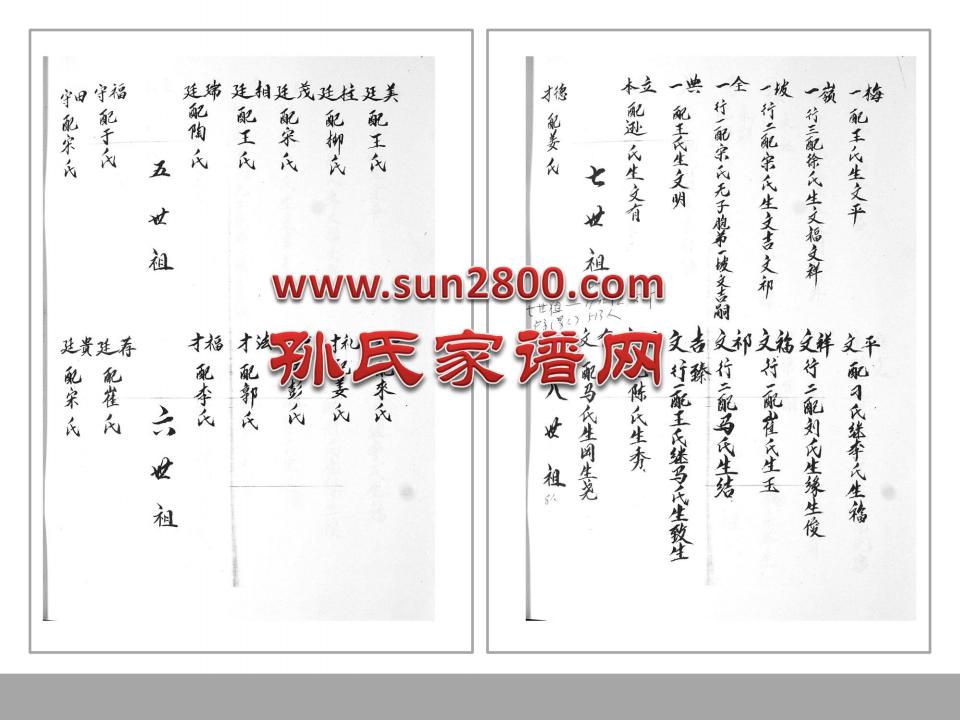 廷美配王氏
廷桂配柳氏
廷茂配宋氏
廷相配王氏
廷瑞配陶氏
五世祖
守福配于氏
守田配宋氏
礼配姜氏
彭氏
才法配郭氏
才福配李氏
六世祖
廷存配崔氏
廷貴配宋氏
一梅配王氏生文平
一嶺行三配徐氏生文福文祥
一坡行二配宋氏生文吉文祁
一全行一配宋氏无子胞弟一坡文吉嗣
一典配王氏生文明
本立配逊氏生文有
七世祖
才德配姜氏
文平配刁氏继李氏生福
文祥行二配刘氏生缘生俊
文福行一配崔氏生玉
文祁行二配马氏生结
文吉行一配王氏继马氏生致生臻
陈氏生秀
文配马氏生网生尧
八世祖
www.sun2800.com
孙氏家谱网